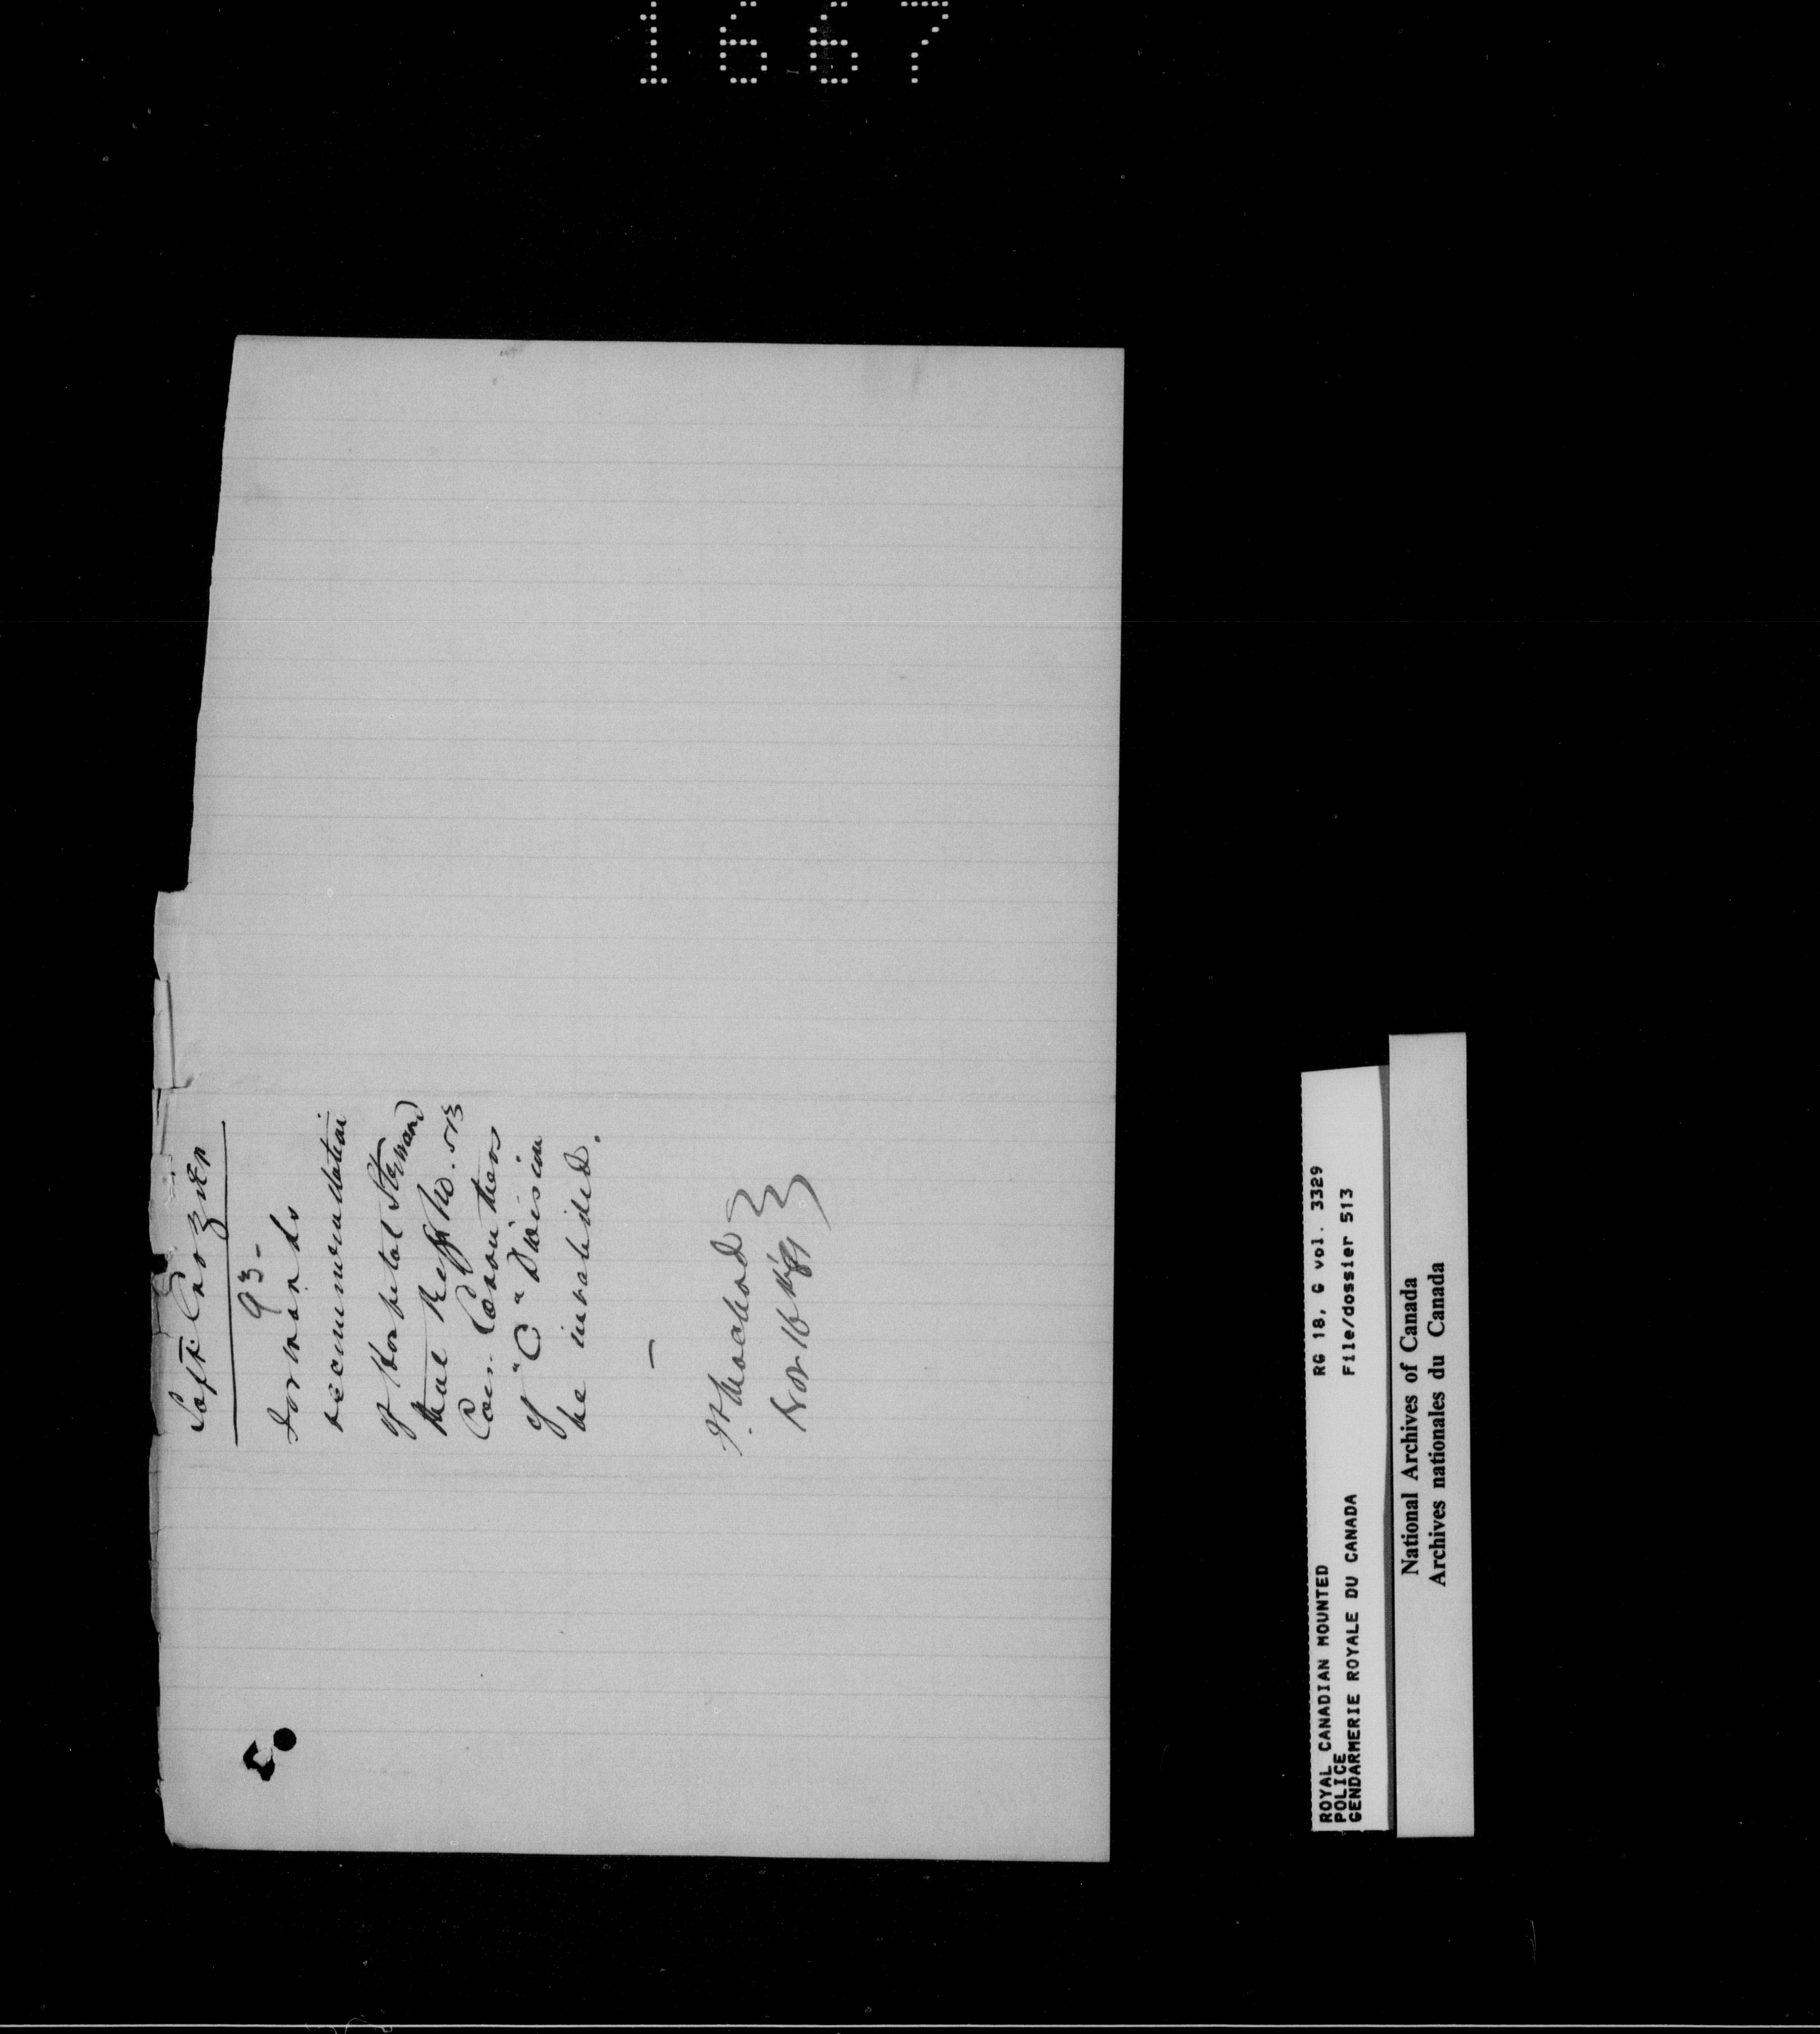 1667
Supt. Crozier
93-
Forwards
recommendation
of Hospital Steward
that Regtl No. 513
Con. Carruthers
of "C" Division
be invalided.
Nov 16th
ROYAL CANADIAN MOUNTED
POLICE
GENDARMERIE ROYALE DU CANADA
RG 18, G vol. 3329
File/dossier 513
National Archives of Canada
Archives nationales du Canada